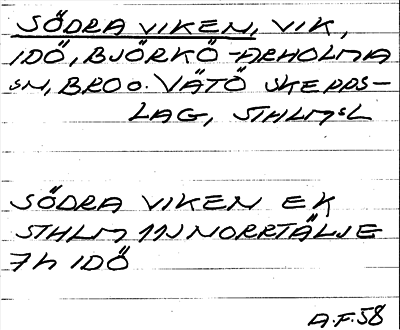 SÖDRA VIKEN, VIK,
IDÖ, BJÖRKÖ-ARHOLMA
SN, BRO O. VÄTÖ SKEPPS-
LAG, STHLMSL
SÖDRA VIKEN EK
STHLM 11N NORRTÄLJE
7h IDÖ
A.F.58